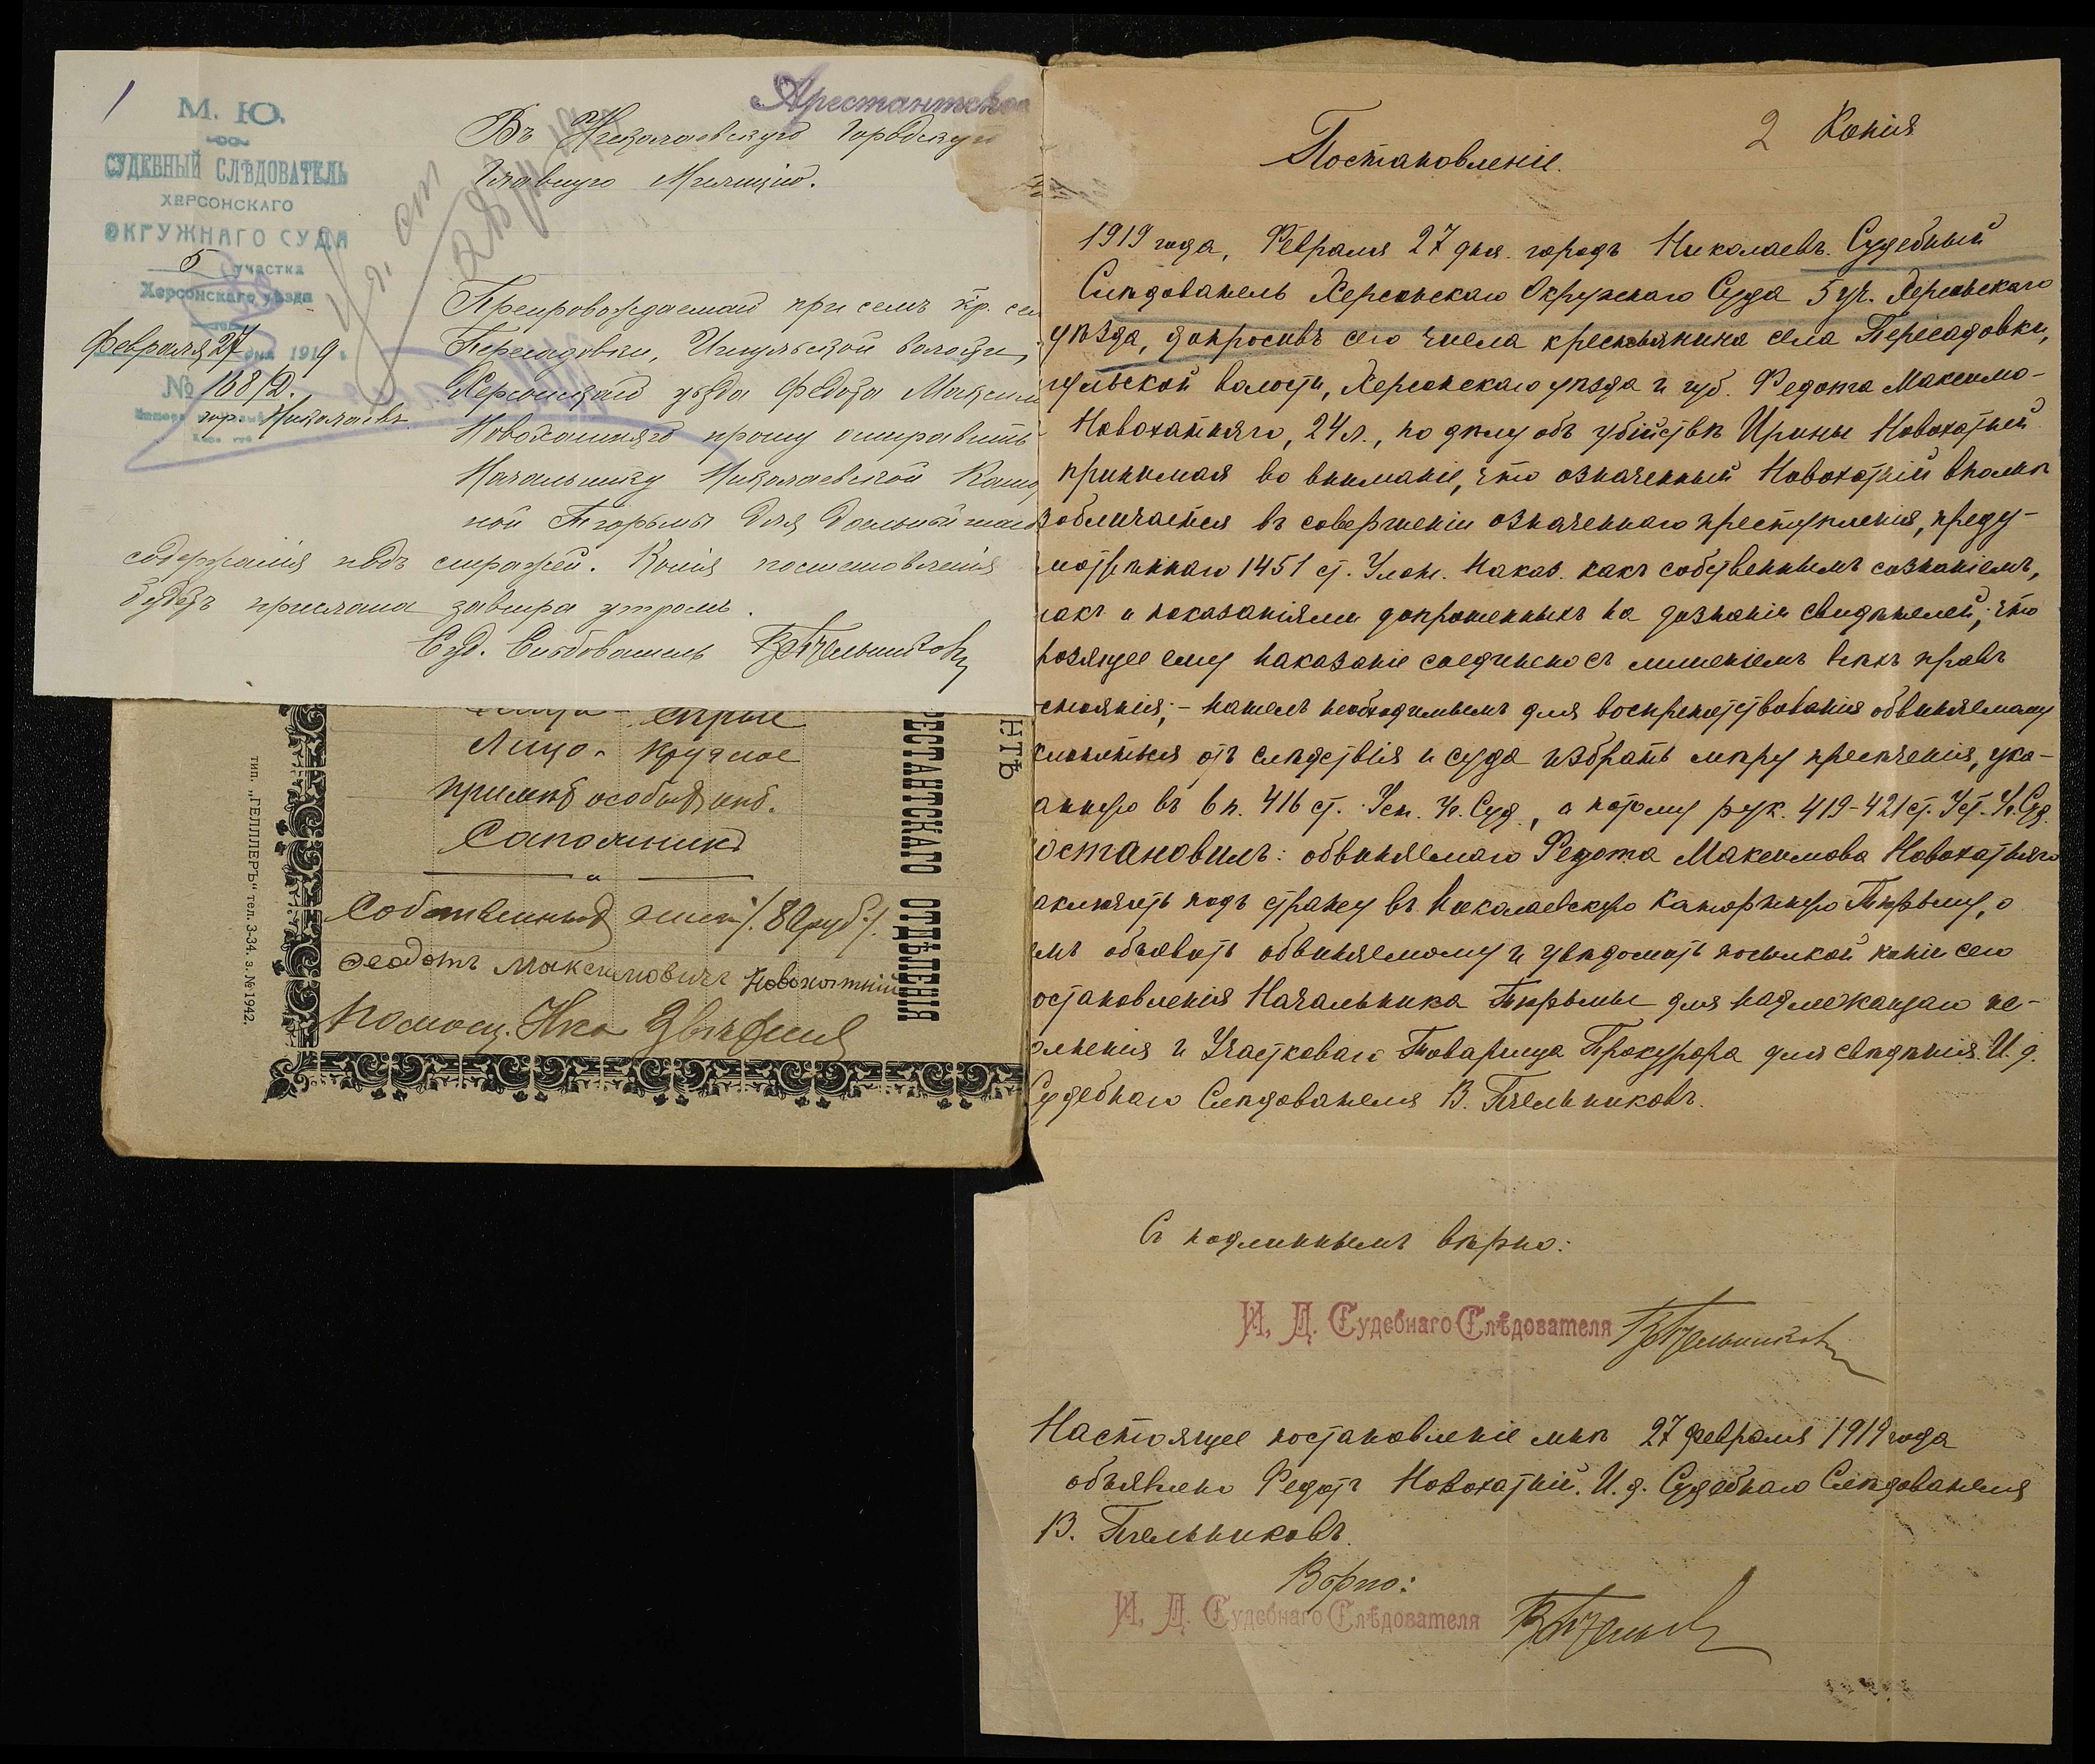 1
М. Ю.
СУДЕБНЫЙ СЛѢДОВАТЕЛЬ
ХЕРСОНСКАГО
ОКРУЖНАГО СУДА
5 участка
Херсонскаго уѣзда
Февраля 27 дня 1919 г.
№ 168/Д.
гор. Николаевъ
Арестантское
Въ Николаевскую Городскую
Главную Милицію.
Препровождаемый при семъ кр. сел
Пересадовки, Ингульской волости,
Херсонскаго уѣзда Федота Максим
Новохатняго прошу отправить
Начальнику Николаевской Катор
ной Тюрьмы для дальнѣйшаго
содержанія подъ стражей. Копія постановленія
будетъ прислана завтра утромъ.
Суд. Слѣдователь ВПчельниковъ
сѣрые
Лицо - круглое
примѣт особых нѣт.
Сапожник
Собственных денег /. 80 руб /.
Феодотъ Максимовичъ Новохотній
Помощ. Нка
тип. „ГЕЛЛЕРЪ“ тел. 3-34. з. № 1942.
РЕСТАНТСКАГО ОТДѢЛЕНІЯ
НТѢ
2 Копія
Постановленіе.
1919 года, Февраля 27 дня. городъ Николаевъ. Судебный
Слѣдователь Херсонскаго Окружнаго Суда 5 уч. Херсонскаго
уѣзда, допросивъ сего числа крестьянина села Пересадовки,
гульской волости, Херсонскаго уѣзда и губ. Федота Максимо-
Новохатняго, 24 л., по дѣлу объ убійствѣ Ирины Новохатней
принимая во вниманіе, что означенный Новохатній вполнѣ
зобличается въ совершеніи означеннаго преступленія, преду-
мотрѣннаго 1451 ст. Улож. Наказ. какъ собственнымъ сознаніемъ,
такъ и показаніями допрошенныхъ на дознаніи свидѣтелей, что
розящее ему наказаніе соединено съ лишеніемъ всѣхъ правъ
стоянія; - нашелъ необходимымъ для воспрепятствованія обвиняемому
клоняться отъ слѣдствія и суда избрать мѣру пресѣченія, ука-
анную въ 6 п. 416 ст. Уст. Уг. Суд., а потому рук. 419-421 ст. Уст. Уг. Суд.
остановилъ: обвиняемаго Федота Максимова Новохатняго
аключить подъ стражу въ Николаевскую Каторжную Тюрьму, о
емъ объявить обвиняемому и увѣдомить посылкой копіи сего
остановленія Начальника Тюрьмы для надлежащаго ис-
олненія и Участковаго Товарища Прокурора для свѣдѣнія. И. д.
Судебнаго Слѣдователя В. Пчельниковъ.
Съ подлиннымъ вѣрно:
И. Д. Судебнаго Слѣдователя ВПчельниковъ
Настоящее постановленіе мнѣ 27 февраля 1919 года
объявлено Федотъ Новохатній. И. д. Судебнаго Слѣдователя
В. Пчельниковъ.
Вѣрно:
И. Д. Судебнаго Слѣдователя